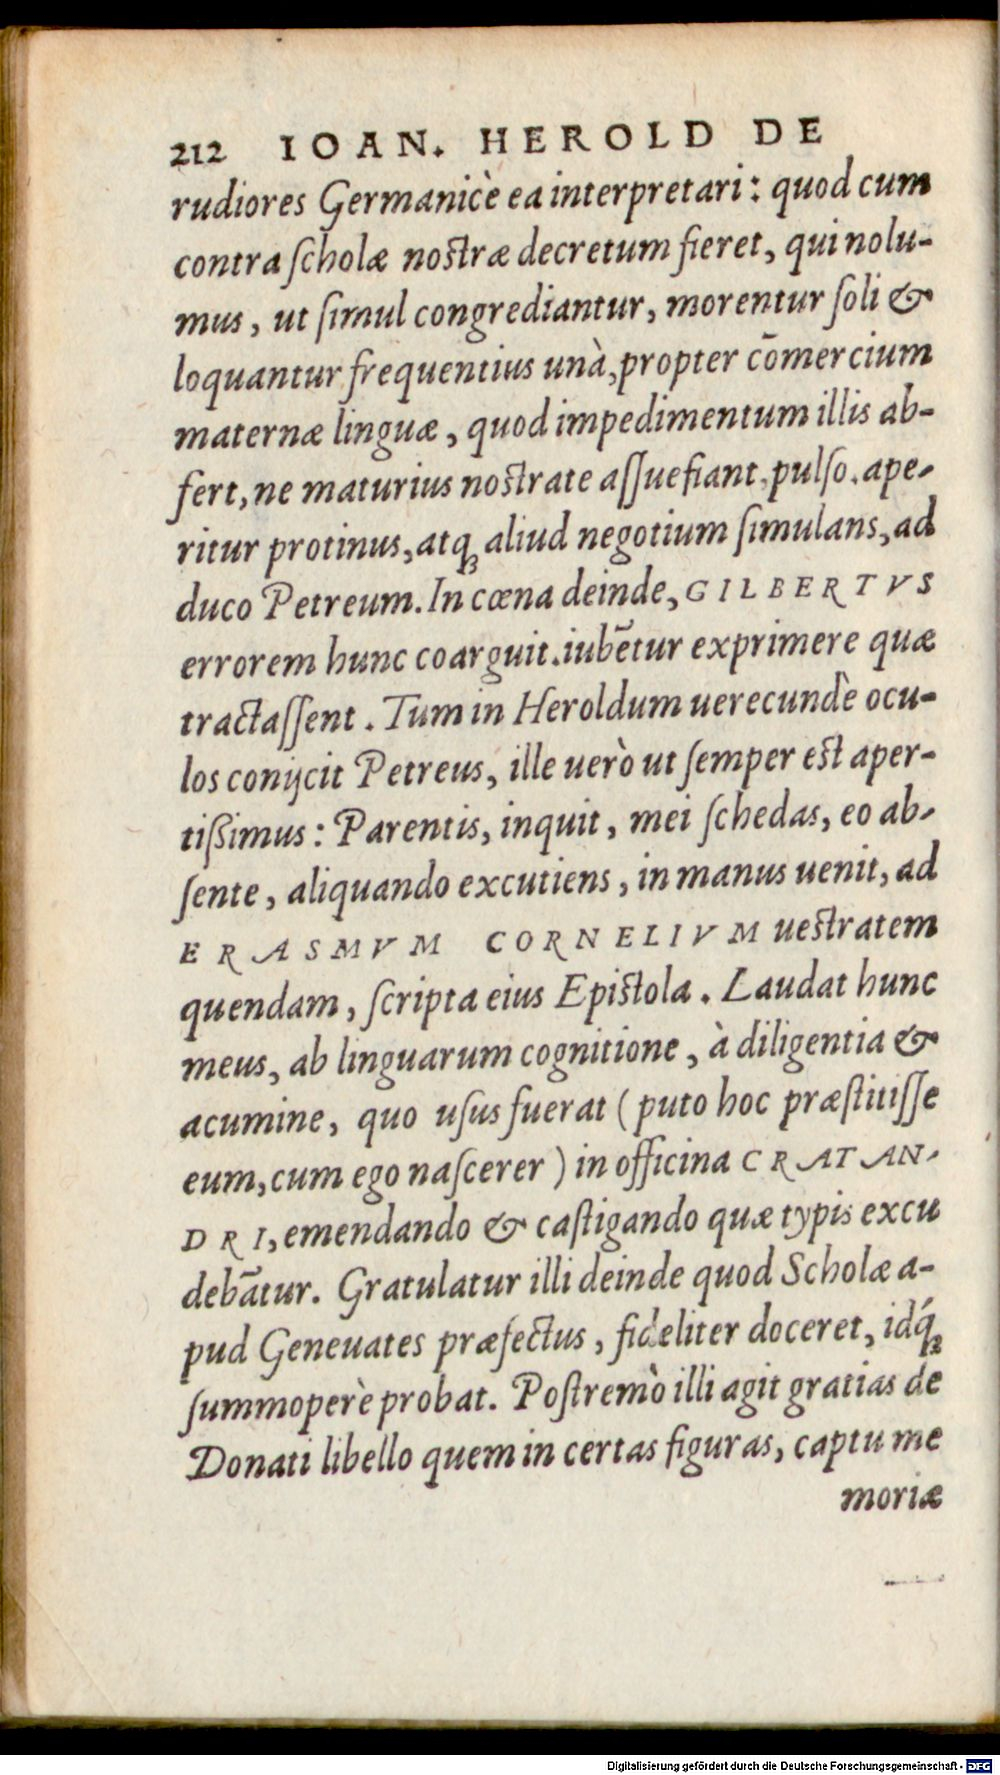 212 IOAN. HEROLD DE
rudiores Germanicè ea interpretari: quod cum
contra ſcholæ noſtræ decretum fieret, qui nolu-
mus, ut ſimul congrediantur, morentur ſoli &
loquantur frequentius unà, propter cōmercium
maternæ linguæ, quod impedimentum illis ab-
fert, ne maturius noſtrate aſſuefiant. pulſo. ape-
ritur protinus, atqꝫ aliud negotium ſimulans, ad
duco Petreum. In cœna deinde, GILBERTVS
errorem hunc coarguit. iubētur exprimere quæ
tractaſſent. Tum in Heroldum uerecundè ocu-
los conijcit Petreus, ille uerò ut ſemper eſt aper-
tißimus: Parentis, inquit, mei ſchedas, eo ab-
ſente, aliquando excutiens, in manus uenit, ad
ERASMVM CORNELIVM ueſtratem
quendam, ſcripta eius Epiſtola. Laudat hunc
meus, ab linguarum cognitione, à diligentia &
acumine, quo uſus fuerat (puto hoc præſtitiſſe
eum, cum ego naſcerer) in officina CRATAN-
DRI, emendando & caſtigando quæ typis excu
debātur. Gratulatur illi deinde quod Scholæ a-
pud Geneuates præfectus, fideliter doceret, idq́ꝫ
ſummoperè probat. Poſtremò illi agit gratias de
Donati libello quem in certas figuras, captu me
moriæ
Digitalisierung gefördert durch die Deutsche Forschungsgemeinschaft - DFG